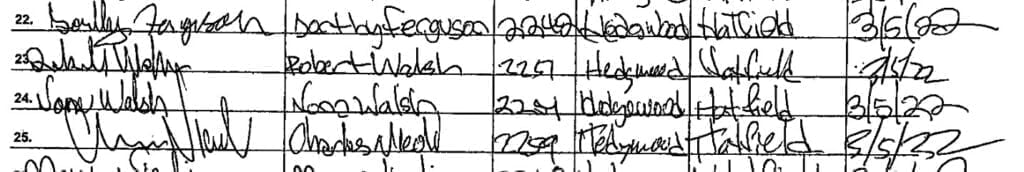 22. Dorothy Ferguson Dorothy Ferguson 2242 Hedgewood Hatfield 3/5/22
23. Robert Walsh Robert Walsh 2257 Hedgewood Hatfield 3/5/22
24. Nora Walsh Nora Walsh 2257 Hedgewood Hatfield 3/5/22
25. Charles 2259 Hedgewood Hatfield 3/5/22